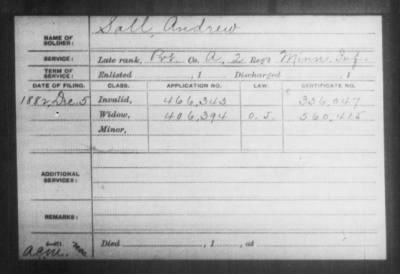 Sall, Andrew
NAME OF SOLDIER:
SERVICE: Late rank, Pvt. Co. A, 2 Reg't Minn. Inf.
TERM OF SERVICE: Enlisted , 1 Discharged , 1
DATE OF FILING. CLASS. APPLICATION NO. LAW. CERTIFICATE NO.
1882, Dec. 5 Invalid, 466,343 336,047
Widow, 406,394 O. J. 560,415
Minor,
ADDITIONAL SERVICES:
REMARKS:
Died , 1 , at